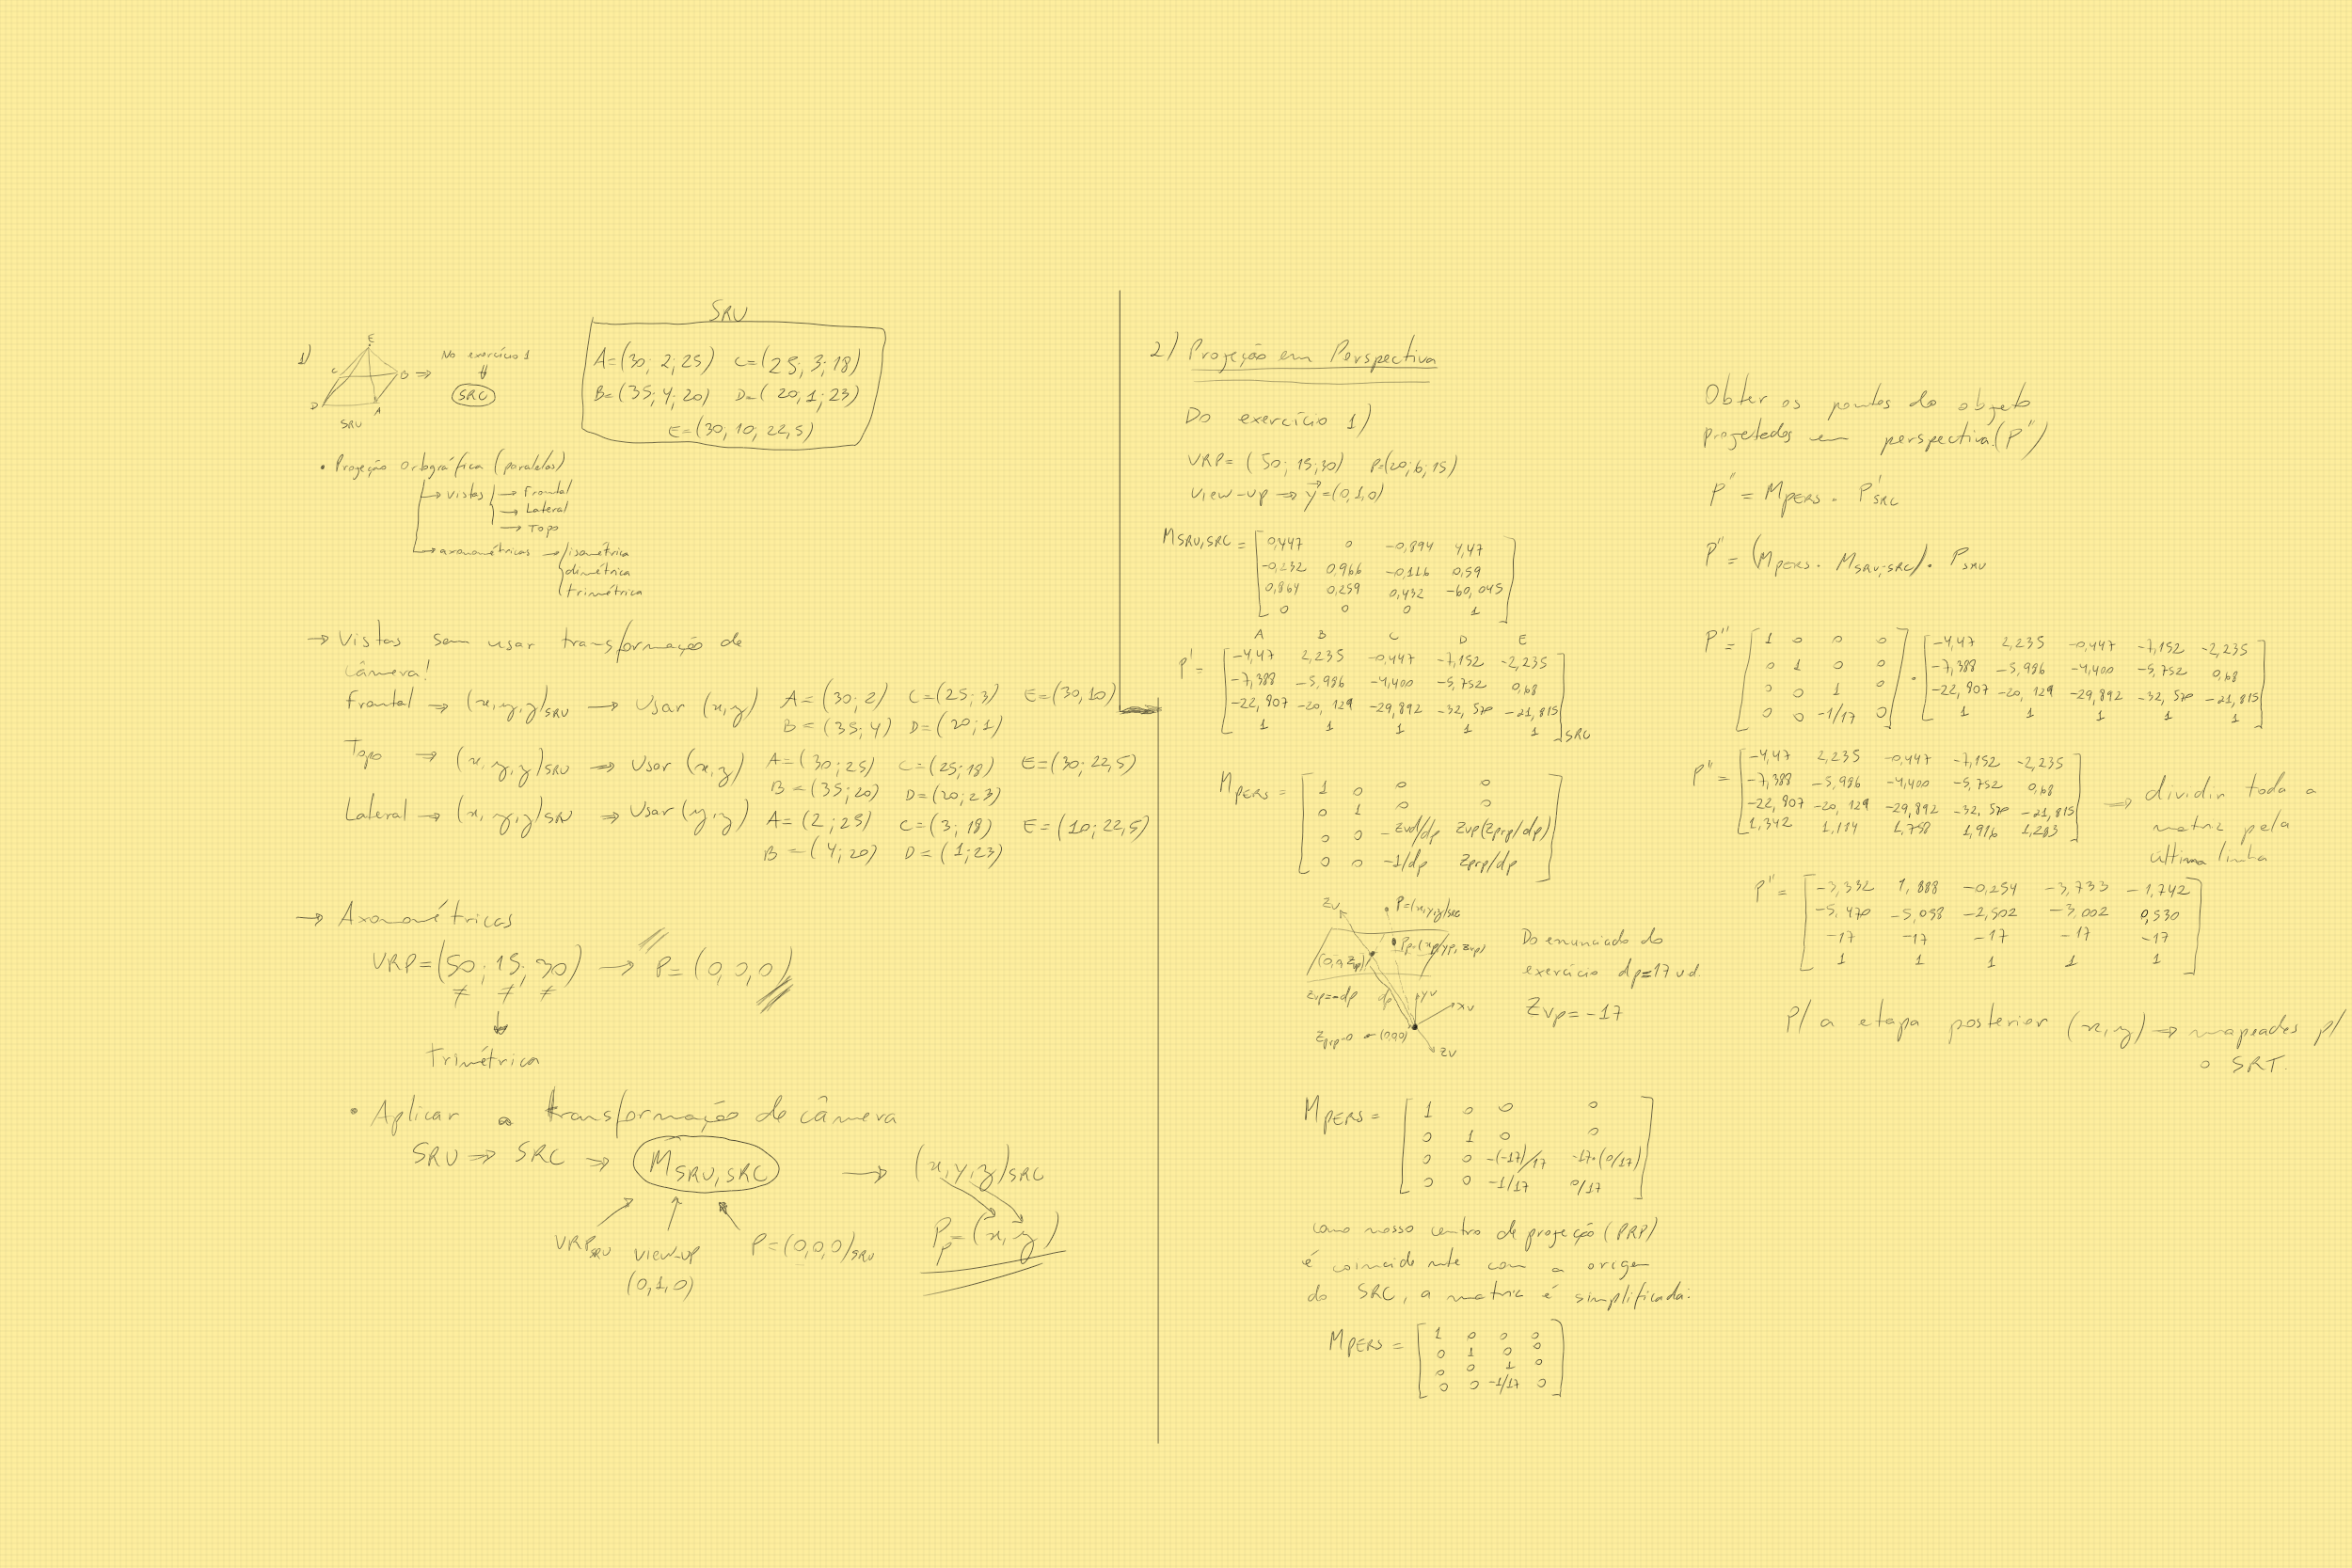 1)
E
C
B
D
A
SRU
⇒ No exercício 1
⇓
SRC
SRU
A=(30; 2; 25) C=(25; 3; 18)
B=(35; 4; 20) D=(20; 1; 23)
E=(30, 10; 22,5)
• Projeção Ortográfica (paralelas)
→ vistas → Frontal
→ Lateral
→ Topo
→ axonométricas → isométrica
dimétrica
trimétrica
→ Vistas sem usar transformação de
câmera!
Frontal → (x,y,z)SRU → Usar (x,y) A=(30;2) C=(25;3) E=(30,10)
B=(35;4) D=(20;1)
Topo ⇒ (x,y,z)SRU ⇒ Usar (x,z) A=(30;25) C=(25;18) E=(30;22,5)
B=(35;20) D=(20;23)
Lateral → (x,y,z)SRU ⇒ Usar (y,z) A=(2;25) C=(3;18) E=(10;22,5)
B=(4;20) D=(1;23)
→ Axonométricas
VRP=(50;15;30) → P=(0,0,0)
≠ ≠ ≠
↓
Trimétrica
• Aplicar a transformação de câmera
SRU ⇒ SRC ⇒ MSRU,SRC → (x,y,z)SRC
VRPSRU VIEW-UP P=(0,0,0)SRU Pp=(x,y)
(0,1,0)
2) Projeção em Perspectiva
Do exercício 1)
VRP=(50;15;30) P=(20;6;15)
View-up ⇒ y=(0,1,0)
MSRU,SRC =
0,447 0 -0,894 4,47
-0,232 0,966 -0,116 0,59
0,864 0,259 0,432 -60,045
0 0 0 1
A B C D E
P' =
-4,47 2,235 -0,447 -7,152 -2,235
-7,388 -5,986 -4,400 -5,752 0,68
-22,907 -20,129 -29,892 -32,570 -21,815
1 1 1 1 1
SRC
MPERS =
1 0 0 0
0 1 0 0
0 0 -Zvp/dp Zvp(Zprp/dp)
0 0 -1/dp Zprp/dp
Zv
P=(x,y,z)SRC
Pp=(xp,yp,zvp)
(0,0,Zvp)
Zvp=-dp dp yv xv
Zprp=0 (0,0,0)
zv
Do enunciado do
exercício dp=17 u.d.
Zvp=-17
MPERS =
1 0 0 0
0 1 0 0
0 0 -(-17)/17 -17·(0/17)
0 0 -1/17 0/17
como nosso centro de projeção (PRP)
é coincidente com a origem
do SRC, a matriz é simplificada:
MPERS =
1 0 0 0
0 1 0 0
0 0 1 0
0 0 -1/17 0
Obter os pontos do objeto
projetados em perspectiva.(P'')
P'' = MPERS . P'SRC
P'' = (MPERS . MSRU,SRC) . PSRU
P'' =
1 0 0 0 -4,47 2,235 -0,447 -7,152 -2,235
0 1 0 0 . -7,388 -5,986 -4,400 -5,752 0,68
0 0 1 0 -22,907 -20,129 -29,892 -32,570 -21,815
0 0 -1/17 0 1 1 1 1 1
P'' =
-4,47 2,235 -0,447 -7,152 -2,235
-7,388 -5,986 -4,400 -5,752 0,68
-22,907 -20,129 -29,892 -32,570 -21,815
1,342 1,184 1,758 1,916 1,283
⇒ dividir toda a
matriz pela
última linha
P'' =
-3,332 1,888 -0,254 -3,733 -1,742
-5,470 -5,058 -2,502 -3,002 0,530
-17 -17 -17 -17 -17
1 1 1 1 1
P/ a etapa posterior (x,y) ⇒ mapeados p/
o SRT.